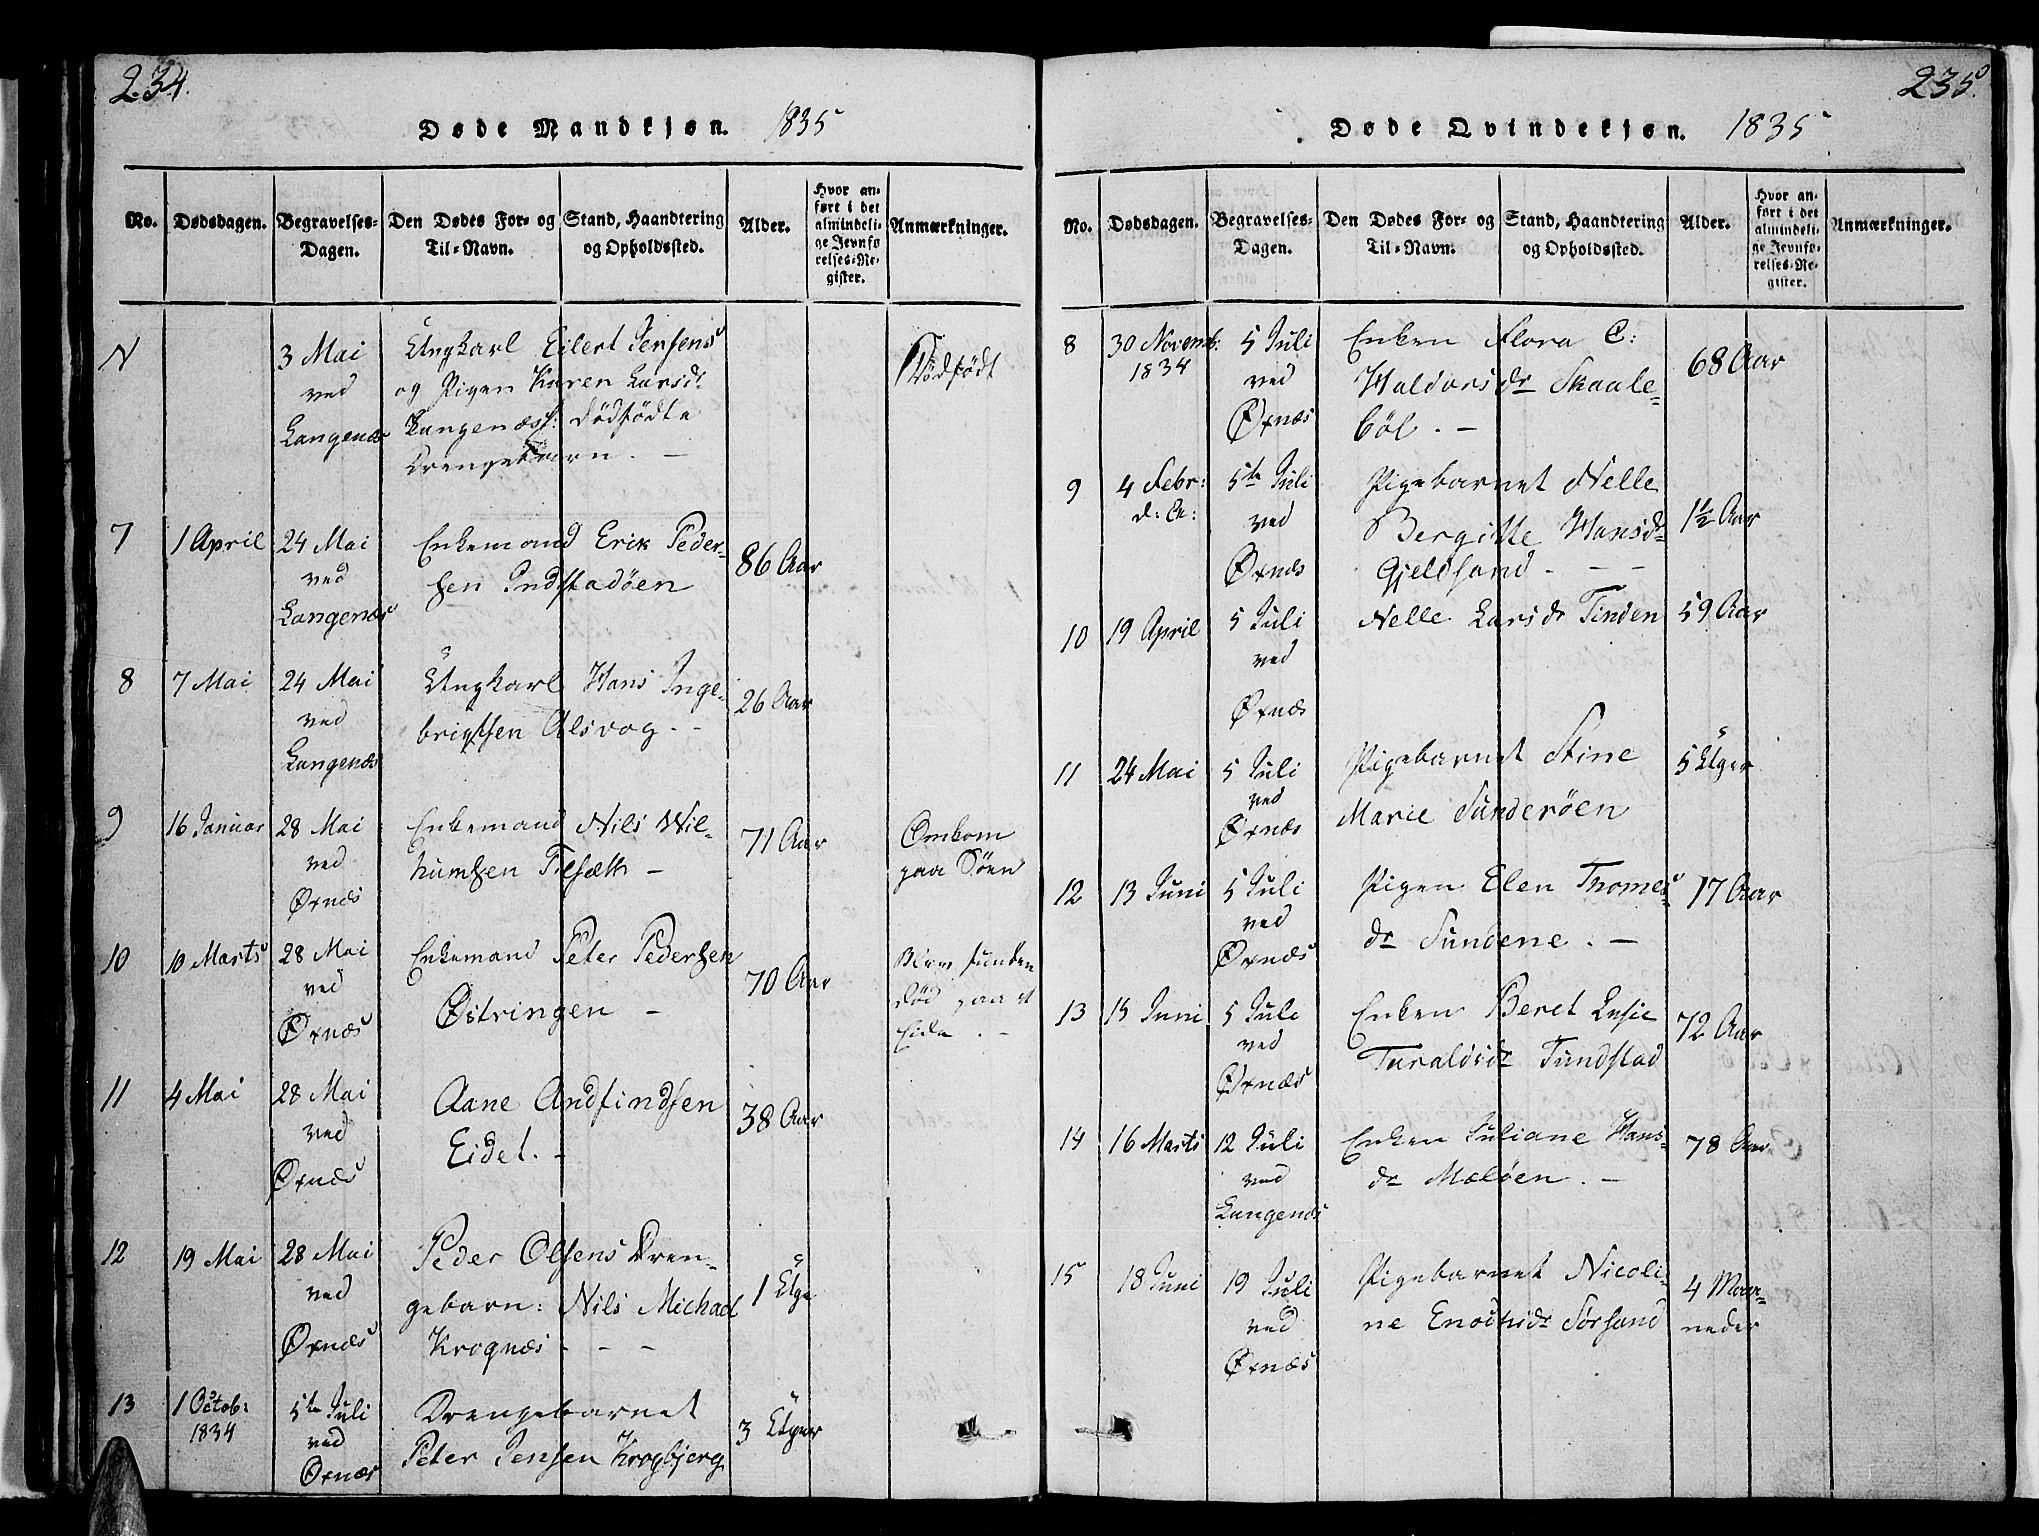 234.
Døde Mandkjøn. 1835
No.
Dødsdagen.
Begravelses-
Dagen.
Den Dødes For- og
Til-Navn.
Stand, Haandtering
og Opholdssted.
Alder.
Hvor an-
ført i det
almindeli-
ge Jevnfø
relses-Re-
gister.
Anmærkninger.
N
3 Mai
ved
Langenæs
Ungkarl Eilert Jensens
og Pigen Karen Larsdr
Langenæs: dødfødte
Drengebarn. —
Dødfødt
7
1 April
24 Mai
ved
Langenæs
Enkemand Erik Peder-
sen Indstadøen
86 Aar
8
7 Mai
24 Mai
ved
Langenæs
Ungkarl Hans Inge-
brigtsen Alsvog. -
26 Aar
9
16 Januar
28 Mai
ved
Øxnæs
Enkemand Nils Wil-
humsen Tilsæth —
71 Aar
Omkom
paa Søen
10
10 Marts
28 Mai
ved
Øxnæs
Enkemand Peter Pedersen
Østringen —
70 Aar
funden
død paa
11
4 Mai
28 Mai
ved
Øxnæs
Aane Andfindsen
Eidet. -
38 Aar
12
19 Mai
28 Mai
ved
Øxnæs
Peder Olsens Dren-
gebarn: Nils Michael
Krognæs - - -
1 Uge
13
1 Octob:
1834
5te Juli
ved
Øxnæs
Drengebarnet
Peter Jensen Krogbjerg
3 Uger
235
Døde Qvindekjøn. 1835
No.
Dødsdagen.
Begravelses-
Dagen.
Den Dødes For- og
Til-Navn.
Stand, Haandtering
og Opholdssted.
Alder.
Hvor an-
ført i det
almindeli-
ge Jevnfø-
relses-Re-
gister.
Anmærkninger.
8
30 Novemb:
1834
5 Juli
ved
Øxnæs
Enken Flora C:
Haldorsdr Skaale-
böl. —
68 Aar
9
4 Febr:
d: A:
5te Juli
ved
Øxnæs
Pigebarnet Nelle
Bergitte Hansdr
Gjeldsand - - -
1½ Aar
10
19 April
5 Juli
ved
Øxnæs
Nelle Larsdr Tinden
59 Aar
11
24 Mai
5 Juli
ved
Øxnæs
Pigebarnet Stine
Marie Sunderöen
5 Uger
12
13 Juni
5 Juli
ved
Øxnæs
Pigen Elen Thomes-
dr Sundene. —
17 Aar
13
15 Juni
5 Juli
ved
Øxnæs
Enken Beret Lusie
Taraldsdr Tundstad
72 Aar
14
16 Marts
12 Juli
ved
Langenæs
Enken Juliane Hans-
dr Meløen. —
78 Aar
15
18 Juni
19 Juli
ved
Øxnæs
Pigebarnet Nicoli-
ne Enochsdr Sørsand
4 Maa-
neder